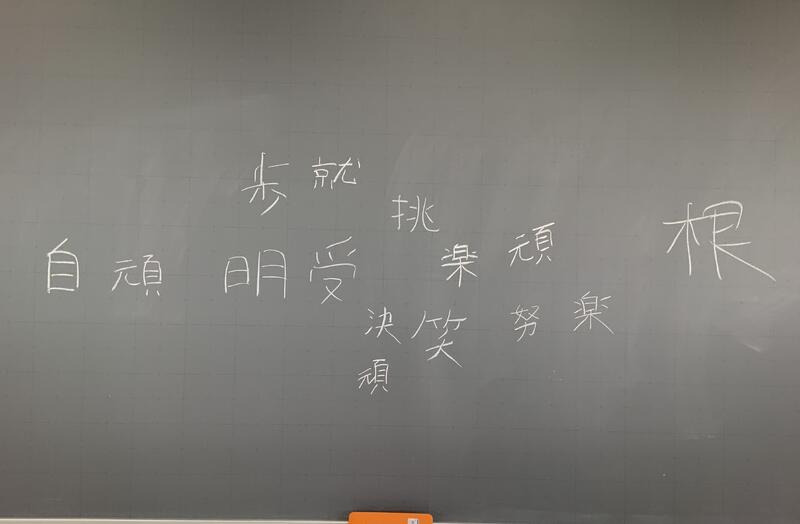 歩 就
挑
自 頑 明 受 楽 頑 根
決 笑 努 楽
頑